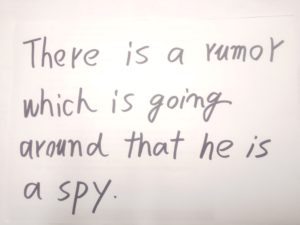 There is a rumor
which is going
around that he is
a spy.